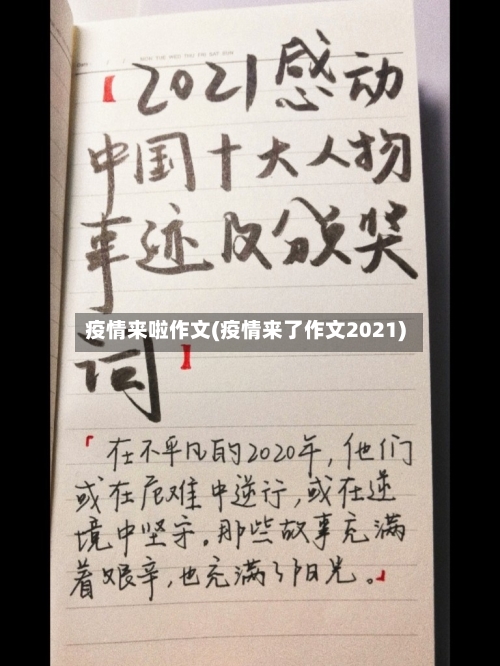 【2021感动
中国十大人物
事迹及颁奖
疫情来啦作文(疫情来了作文2021)
词】
「在不平凡的2020年,他们
或在危难中逆行,或在逆
境中坚守。那些故事充满
着艰辛,也充满了阳光。」